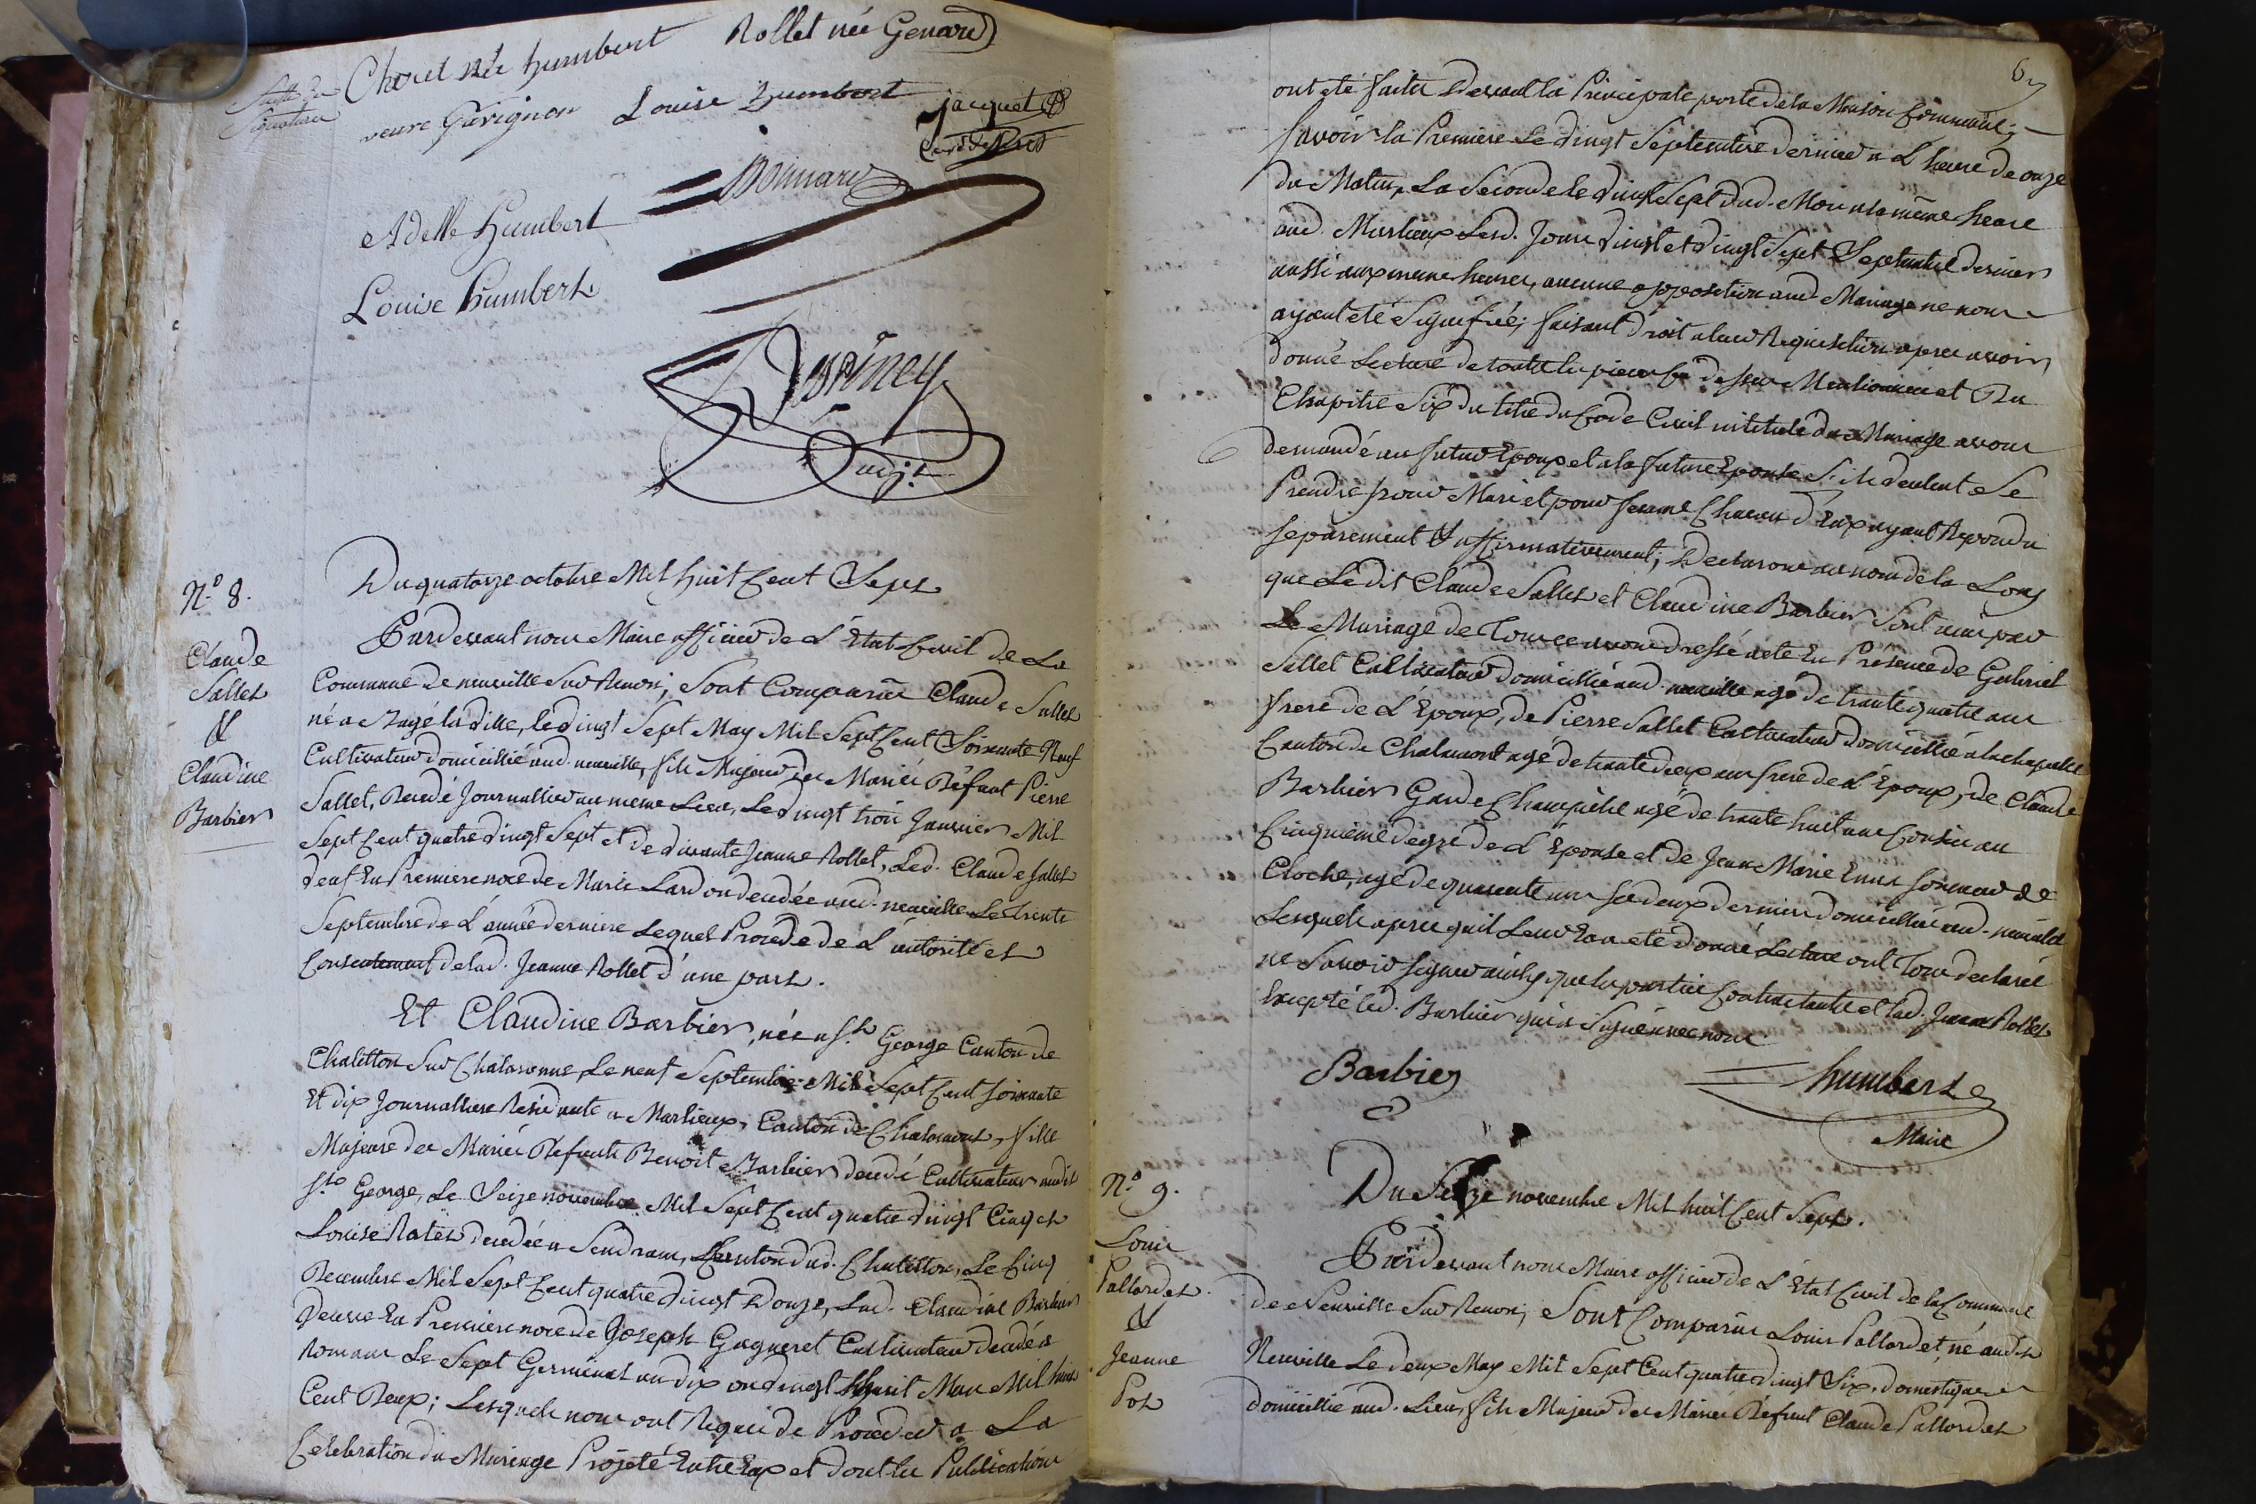 Suite de
Signatures
Choret née humbert Rollet née Genard
veuve Gavignon Louise humbert jacquet
Bonnard
Adelle humbert
Louise humbert
Dupiney
adj.t
N.o 8.
Claude
Sallet
&
Claudine
Barbier
Du quatorze octobre Mil huit Cent Sept
Pardevant nous Maire officier de L'Etat Civil de La
Commune de neuville Sur Renon; Sont Comparus Claude Sallet
né a Bagé la ville, le vingt Sept May Mil Sept Cent Soixante Neuf
Cultivateur domicillié aud. neuville, fils Majeur des Mariés Défunt Pierre
Sallet, Decedé Journallier au meme Lieu, Le vingt trois Janvier Mil
Sept Cent quatre vingt Sept et de vivante Jeanne Rollet, Led. Claude Sallet
veuf En Premiere noce de Marie Lardon decedée aud. neuville Le Trente
Septembre de L'année derniere Lequel Procede de L'autorité et
Consentement de lad. Jeanne Rollet d'une part.
Et Claudine Barbier, née a St. George Canton de
Chatillon Sur Chalaronne, Le neuf Septembre Mil Sept Cent Soixante
Et dix Journalliere Residante a Marlieux, Canton de Chalamont, fille
Majeure des Mariés Défunts Benoit Barbier decedé Cultivateur audit
St. George, Le Seize novembre Mil Sept Cent quatre vingt Cinq et
Louise Ratet decedée a Sendrans, Canton dud. Chatillon, Le Cinq
Decembre Mil Sept Cent quatre vingt Douze, Lad. Claudine Barbier
veuve En Premiere noce de Joseph Gagneret Cultivateur decedé a
Romans Le Sept Germinal an dix ou vingt huit Mars Mil huit
Cent Deux; Lesquels nous ont Requis de Proceder a La
Celebration du Mariage Projeté Entre Eux et dont les Publications
ont eté faites Devant la Principale porte de la Maison Commune;
Savoir la Premiere Le vingt Septembre dernier a L'heure de onze
du Matin, La Seconde le vingt Sept dud. Mois a la même heure
aud. Marlieux Lesd. Jours vingt et vingt Sept Septembre dernier
aussi aux meme heures, aucune opposition aud. Mariage ne nous
ayant eté Signifiée; faisant droit a leur Requisition apres avoir
donné Lecture de toutes les pieces Ci dessus Mentionnées et Du
Chapitre Six du titre du Code Civil intitulé du Mariage avons
demandé au futur Epoux et a la future Epouse S'ils veulent Se
Prendre pour Mari et pour femme Chacun d'Eux ayant Repondu
Separement & affirmativement; Declarons au nom de la Loy
que Le dit Claude Sallet et Claudine Barbier Sont unis par
Le Mariage de Tout ce avons dressé acte En Présence de Gabriel
Sallet Cultivateur domicillié aud. neuville agé de trante quatre ans
frere de L'Epoux, de Pierre Sallet Cultivateur domicillié a la chapelle
Canton de Chalamont agé de trante deux ans frere de L'Epoux, de Claude
Barbier Garde Champêtre agé de trante huit ans Cousin au
Cinquieme degré de L'Epouse et de Jean Marie Enna Sonneur de
Cloche, agé de quarante ans Les deux derniers domicilliés aud. neuville
Lesquels apres qu'il Leur En a eté donné Lecture ont Tous declaré
ne Savoir Signer ainsy que les parties Contractantes et lad. Jeanne Rollet
Excepté led. Barbier qui a Signé avec nous
Barbier
humbert
Maire
N.o 9.
Louis
Pallordet.
&
Jeanne
Pot
Du Seize novembre Mil huit Cent Sept.
Pardevant nous Maire officier de L'Etat Civil de la Commune
de Neuville Sur Renon; Sont Comparus Louis Pallordet, né audit
Neuville Le deux May Mil Sept Cent quatre vingt Six. domestique
domicillié aud. Lieu, fils Majeur des Mariés Défunt Claude Pallordet